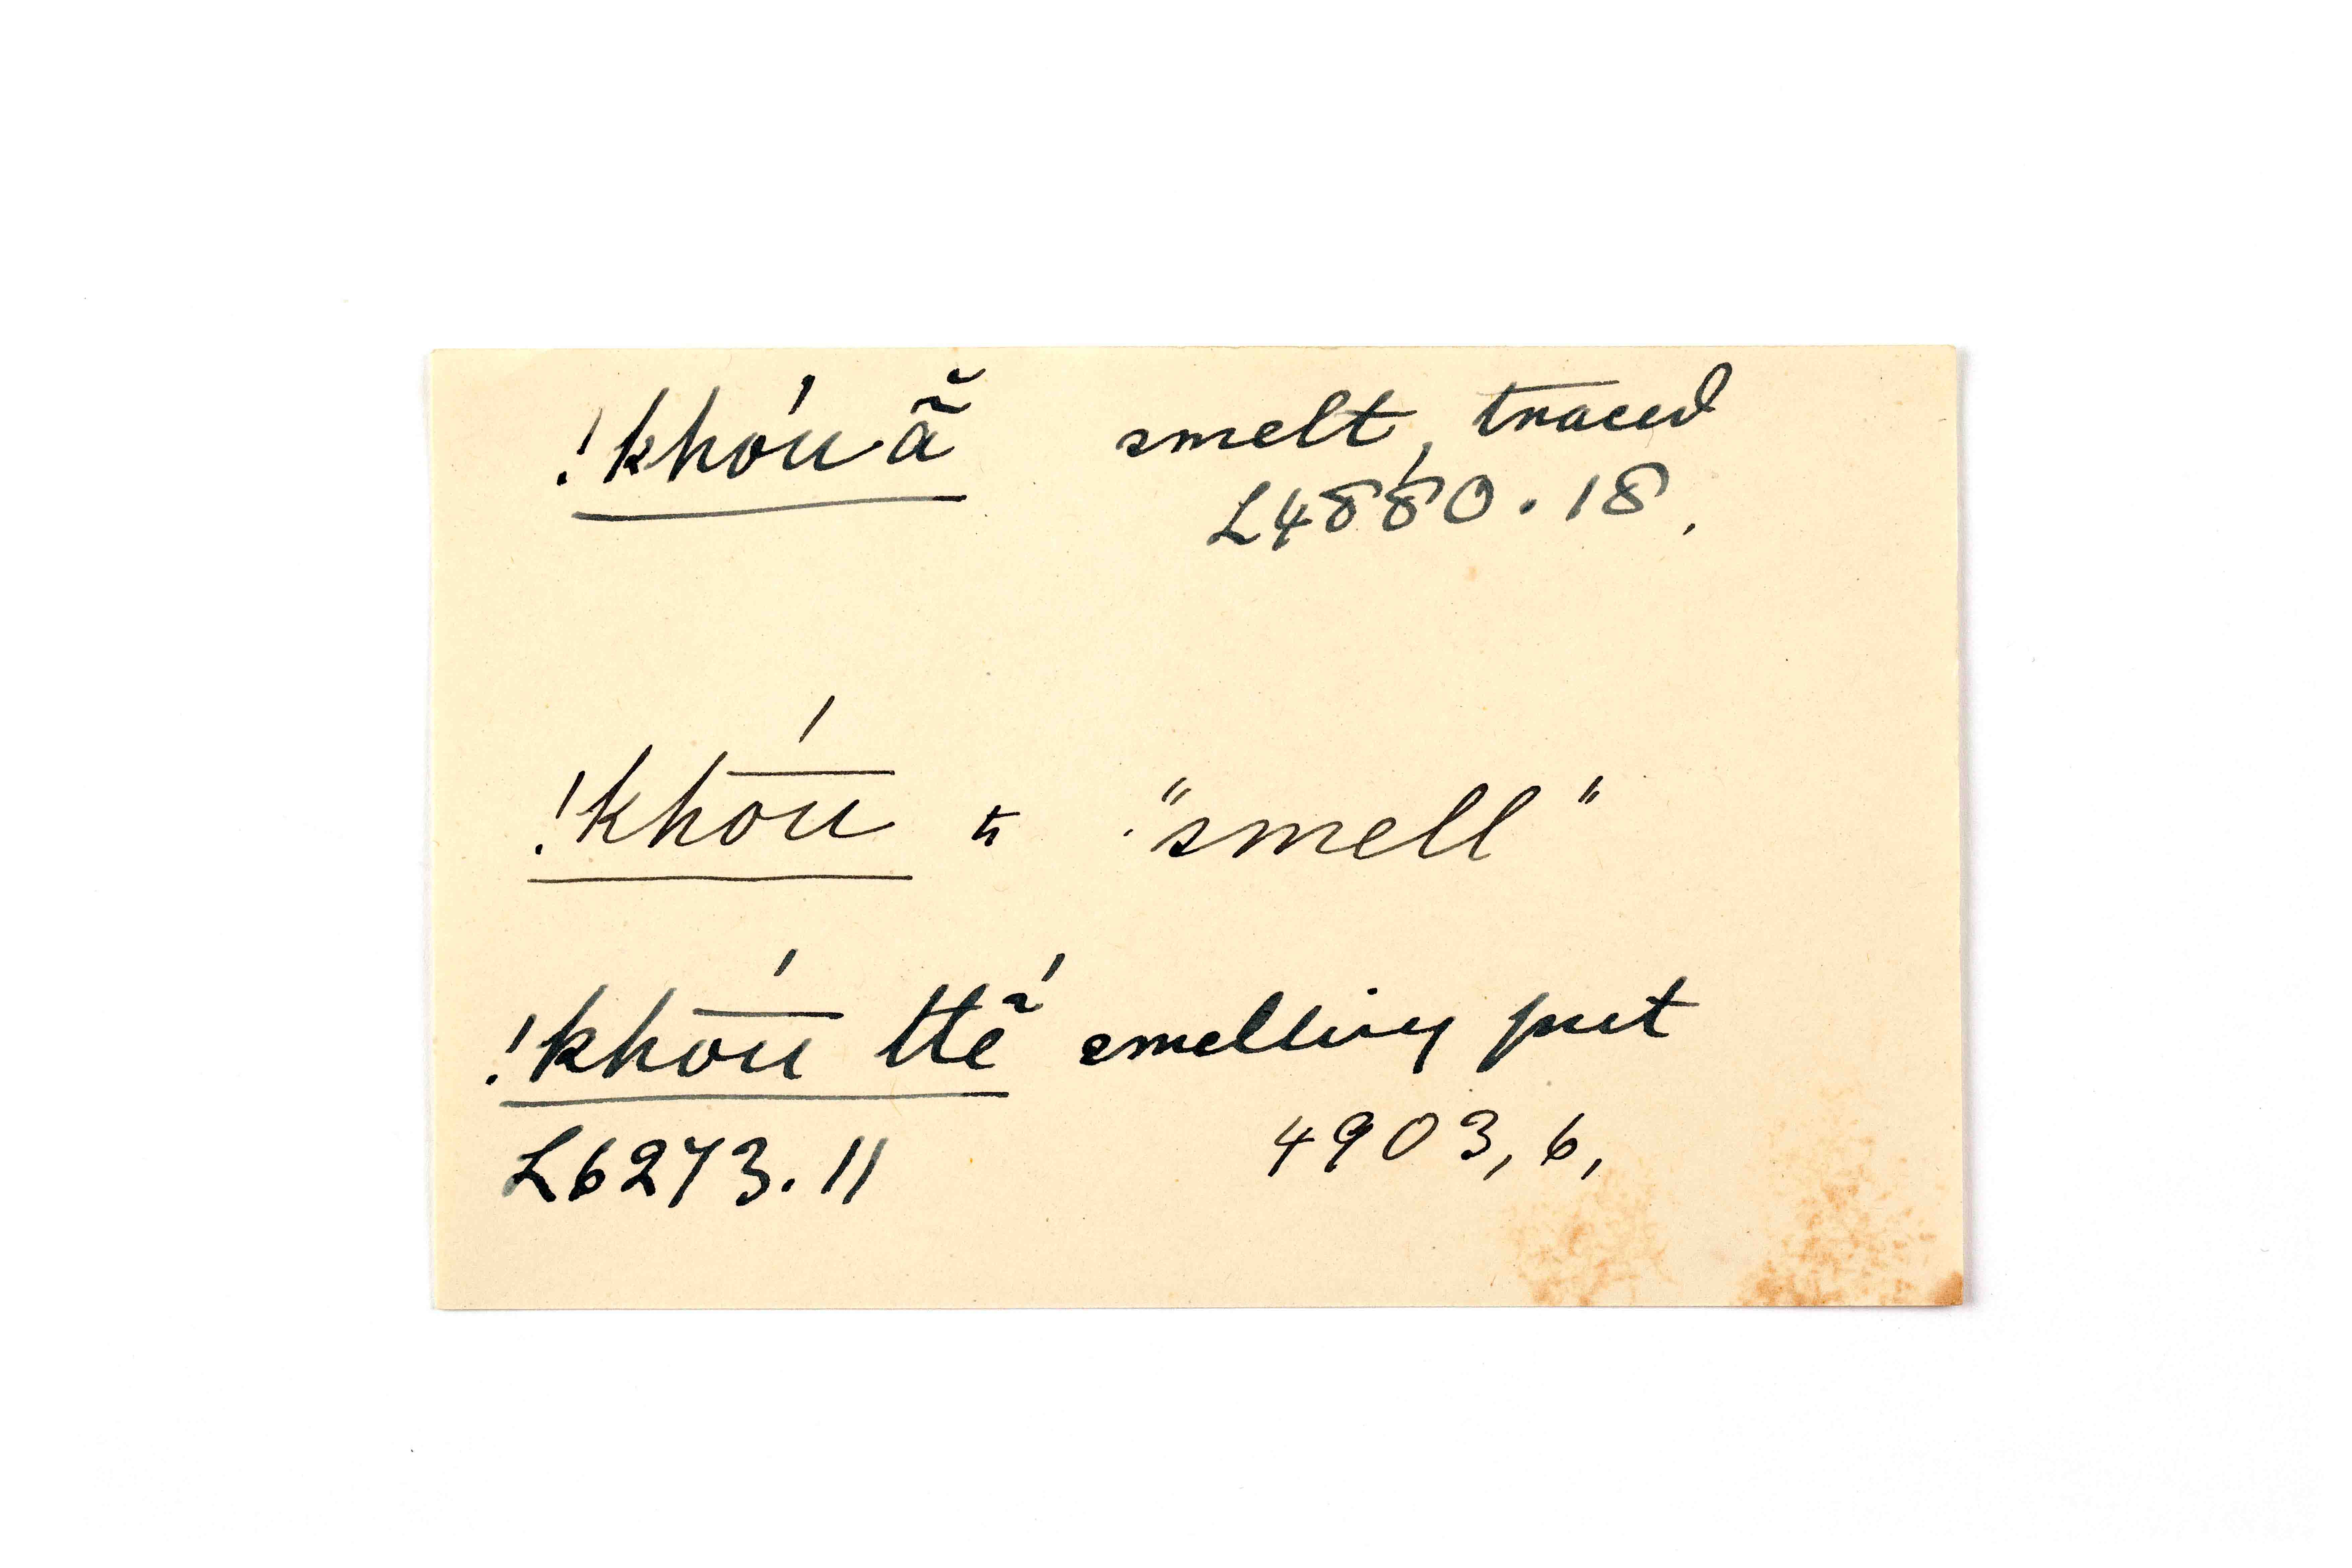 !khóu ã̆ smelt, traced
L4880.18.
!khō̄́u ħ "smell"
!khō̄́u ttẽ́ smelling put
L6273.11 4903,6,